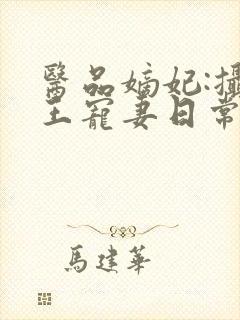 醫品嫡妃:攝
王寵妻日常
馬建華